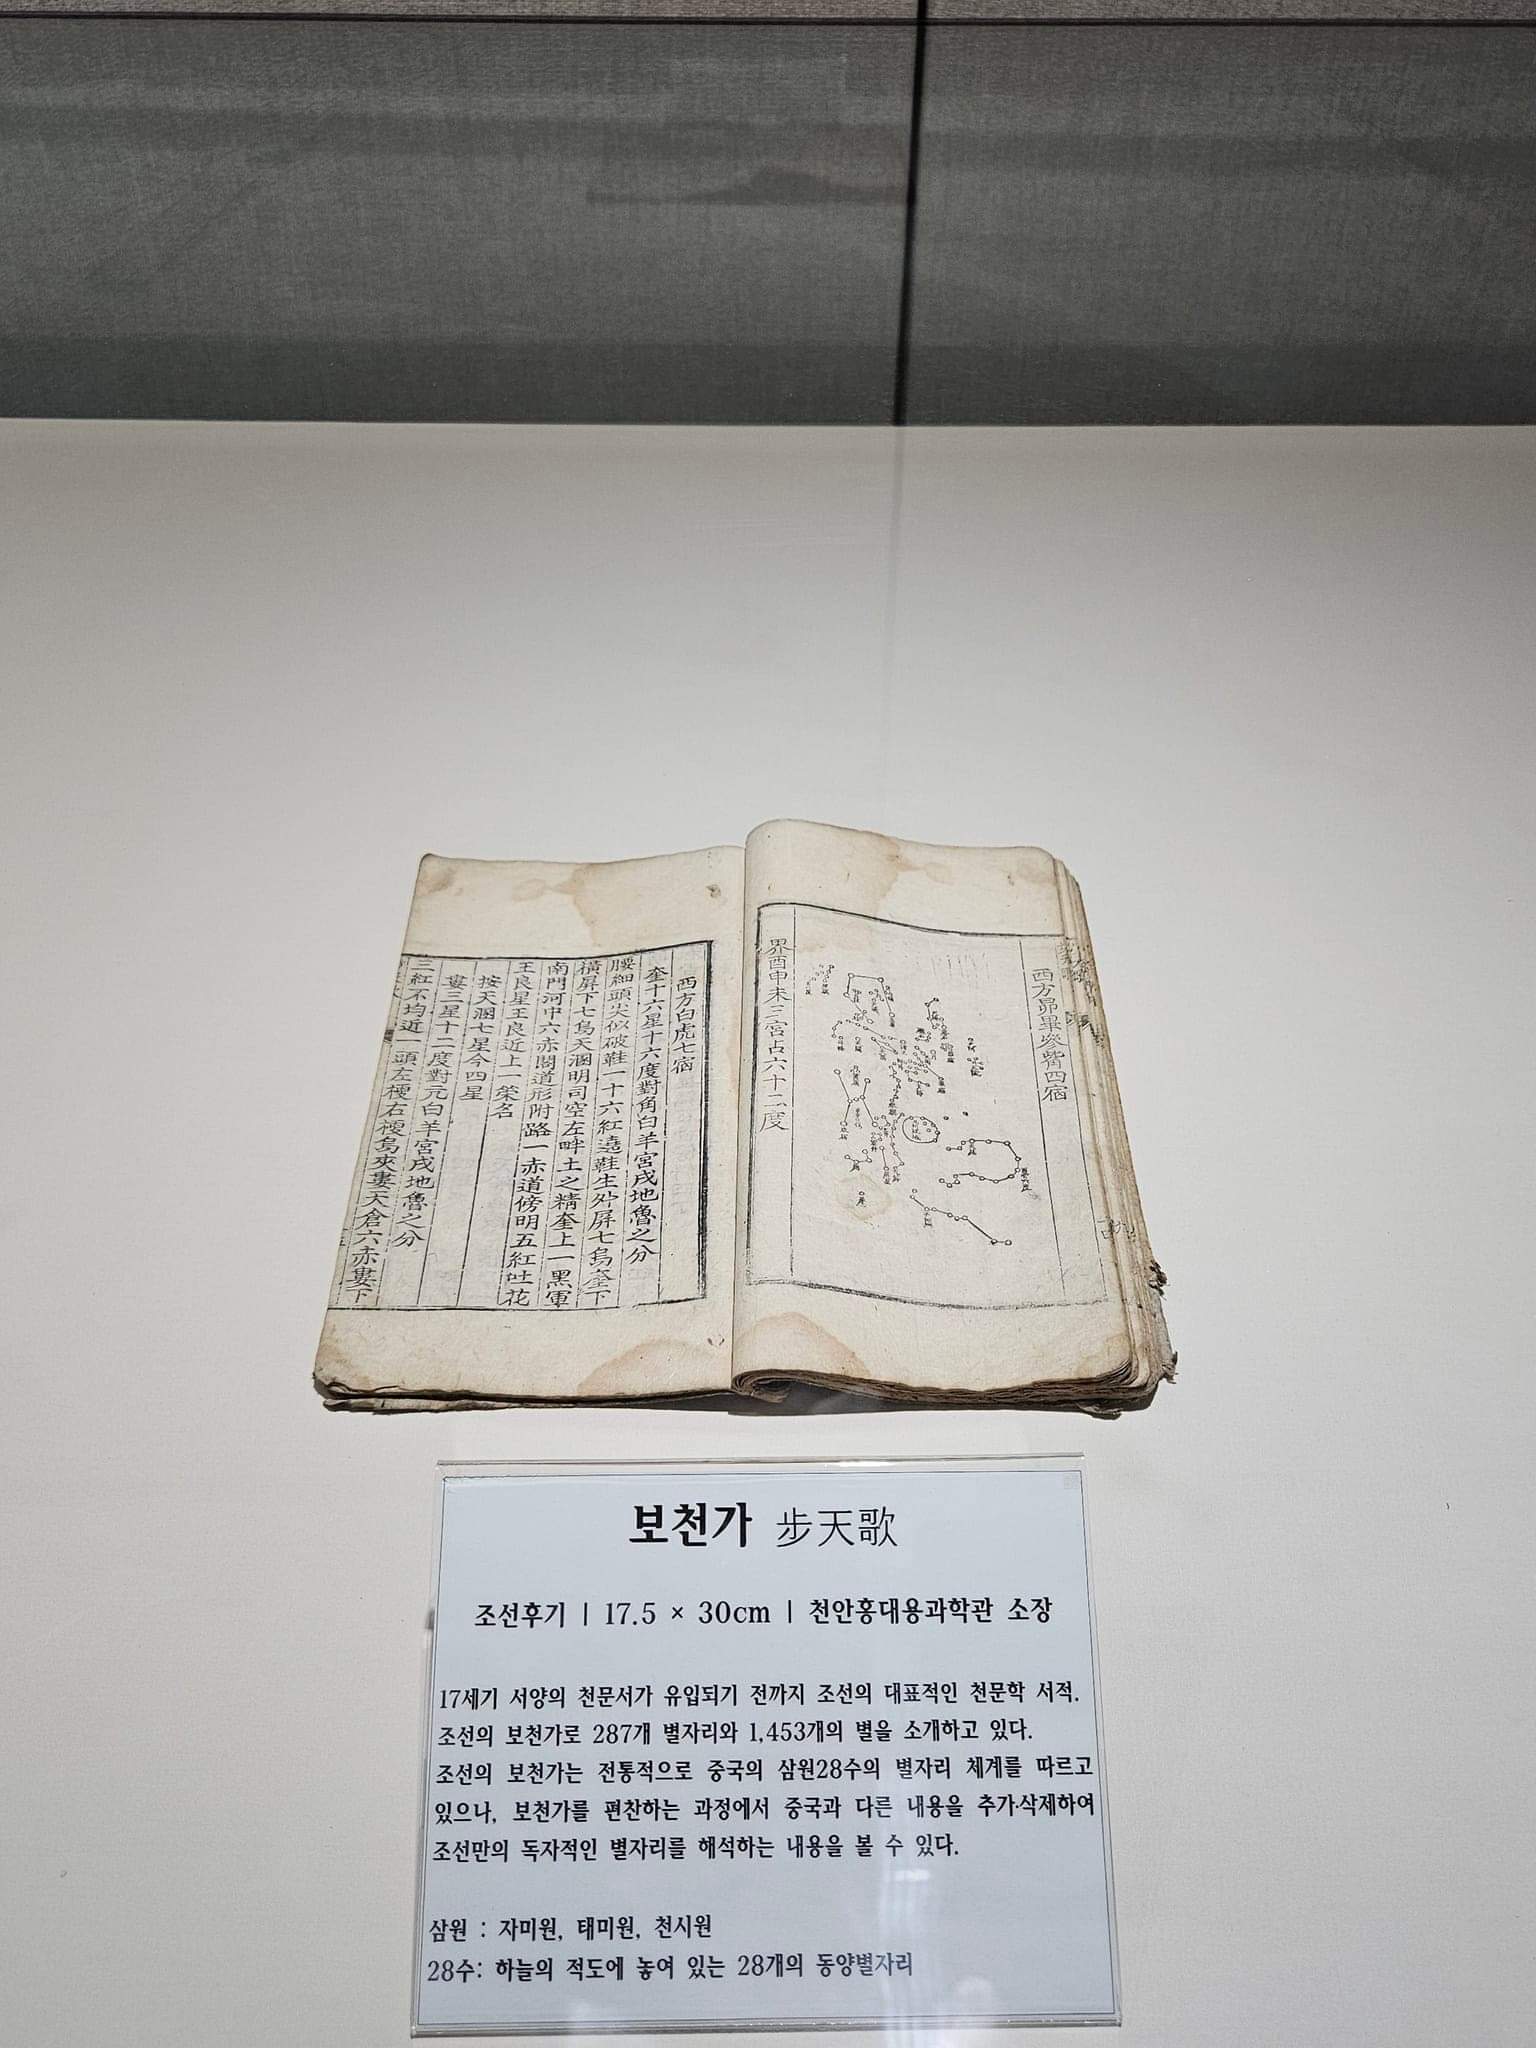 西方昴畢參觜四宿
界酉申未三宮占六十二度
西方白虎七宿
奎十六星十六度對角白羊宮戌地魯之分
腰細頭尖似破鞋一十六紅遶鞋生外屏七烏奎下
橫屏下七烏天溷明司空左畔土之精奎上一黑軍
南門河中六赤閣道形附路一赤道傍明五紅吐花
王良星王良近上一策名
按天溷七星今四星
婁三星十二度對亢白羊宮戌地魯之分
三紅不均近一頭左梗右梗烏夾婁天倉六赤婁下
보천가 步天歌
조선후기 | 17.5 × 30cm | 천안홍대용과학관 소장
17세기 서양의 천문서가 유입되기 전까지 조선의 대표적인 천문학 서적.
조선의 보천가로 287개 별자리와 1,453개의 별을 소개하고 있다.
조선의 보천가는 전통적으로 중국의 삼원28수의 별자리 체계를 따르고
있으나, 보천가를 편찬하는 과정에서 중국과 다른 내용을 추가·삭제하여
조선만의 독자적인 별자리를 해석하는 내용을 볼 수 있다.
삼원 : 자미원, 태미원, 천시원
28수: 하늘의 적도에 놓여 있는 28개의 동양별자리